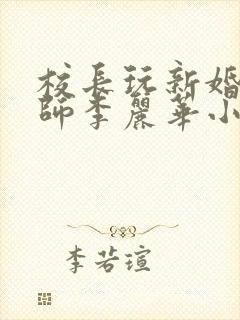 校長玩新婚
師李麗華小
李若瑄